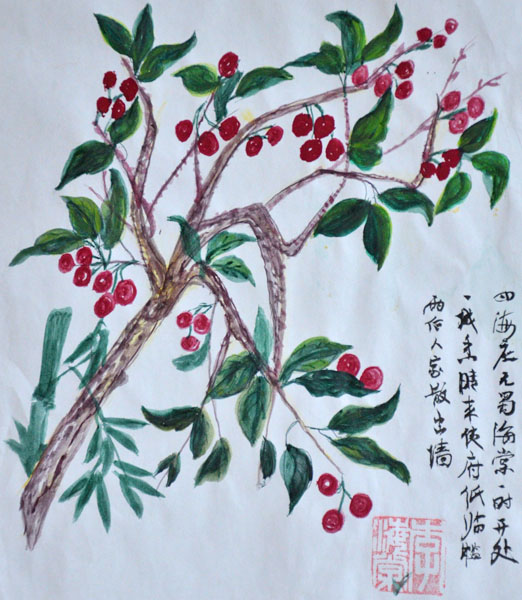 四海应无蜀海棠一时开处
一城香晴来使府低临槛
雨后人家散出墙
海棠